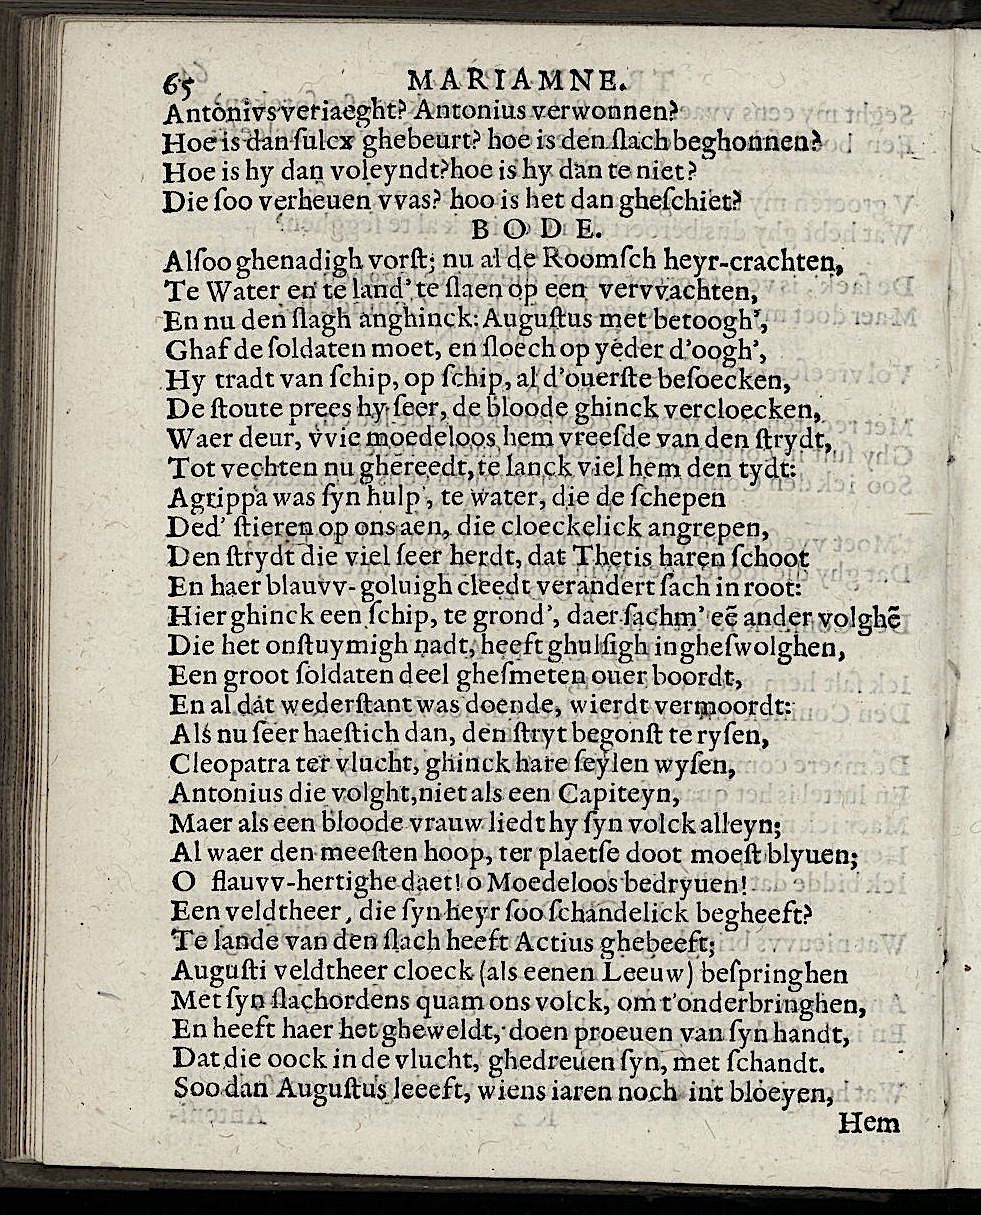 65 MARIAMNE.
Antonivs veriaeght? Antonius verwonnen?
Hoe is dan ſulcx ghebeurt? hoe is den ſlach beghonnen?
Hoe is hy dan voleyndt? hoe is hy dan te niet?
Die ſoo verheuen vvas? hoo is het dan gheſchiet?
B O D E.
Alſoo ghenadigh vorſt; nu al de Roomſch heyr-crachten,
Te Water en te land' te ſlaen op een vervvachten,
En nu den ſlagh anghinck: Auguſtus met betoogh',
Ghaf de ſoldaten moet, en ſloech op yeder d'oogh',
Hy tradt van ſchip, op ſchip, al d'ouerſte beſoecken,
De ſtoute prees hy ſeer, de bloode ghinck vercloecken,
Waer deur, vvie moedeloos hem vreeſde van den ſtrydt,
Tot vechten nu ghereedt, te lanck viel hem den tydt:
Agrippa was ſyn hulp, te water, die de ſchepen
Ded' ſtieren op ons aen, die cloeckelick angrepen,
Den ſtrydt die viel ſeer herdt, dat Thetis haren ſchoot
En haer blauvv-goluigh cleedt verandert ſach in root:
Hier ghinck een ſchip, te grond', daer ſachm' eẽ ander volghẽ
Die het onſtuymigh nadt, heeft ghulſigh in gheſwolghen,
Een groot ſoldaten deel gheſmeten ouer boordt,
En al dat wederſtant was doende, wierdt vermoordt:
Als nu ſeer haeſtich dan, den ſtryt begonſt te ryſen,
Cleopatra ter vlucht, ghinck hare ſeylen wyſen,
Antonius die volght, niet als een Capiteyn,
Maer als een bloode vrauw liedt hy ſyn volck alleyn;
Al waer den meeſten hoop, ter plaetſe doot moeſt blyuen;
O flauvv-hertighe daet! o Moedeloos bedryuen!
Een veldtheer, die ſyn heyr ſoo ſchandelick begheeft?
Te lande van den ſlach heeft Actius ghebeeft;
Auguſti veldtheer cloeck (als eenen Leeuw) beſpringhen
Met ſyn ſlachordens quam ons volck, om t'onderbringhen,
En heeft haer het gheweldt, doen proeuen van ſyn handt,
Dat die oock in de vlucht, ghedreuen ſyn, met ſchandt.
Soo dan Auguſtus leeeft, wiens iaren noch int bloeyen,
Hem